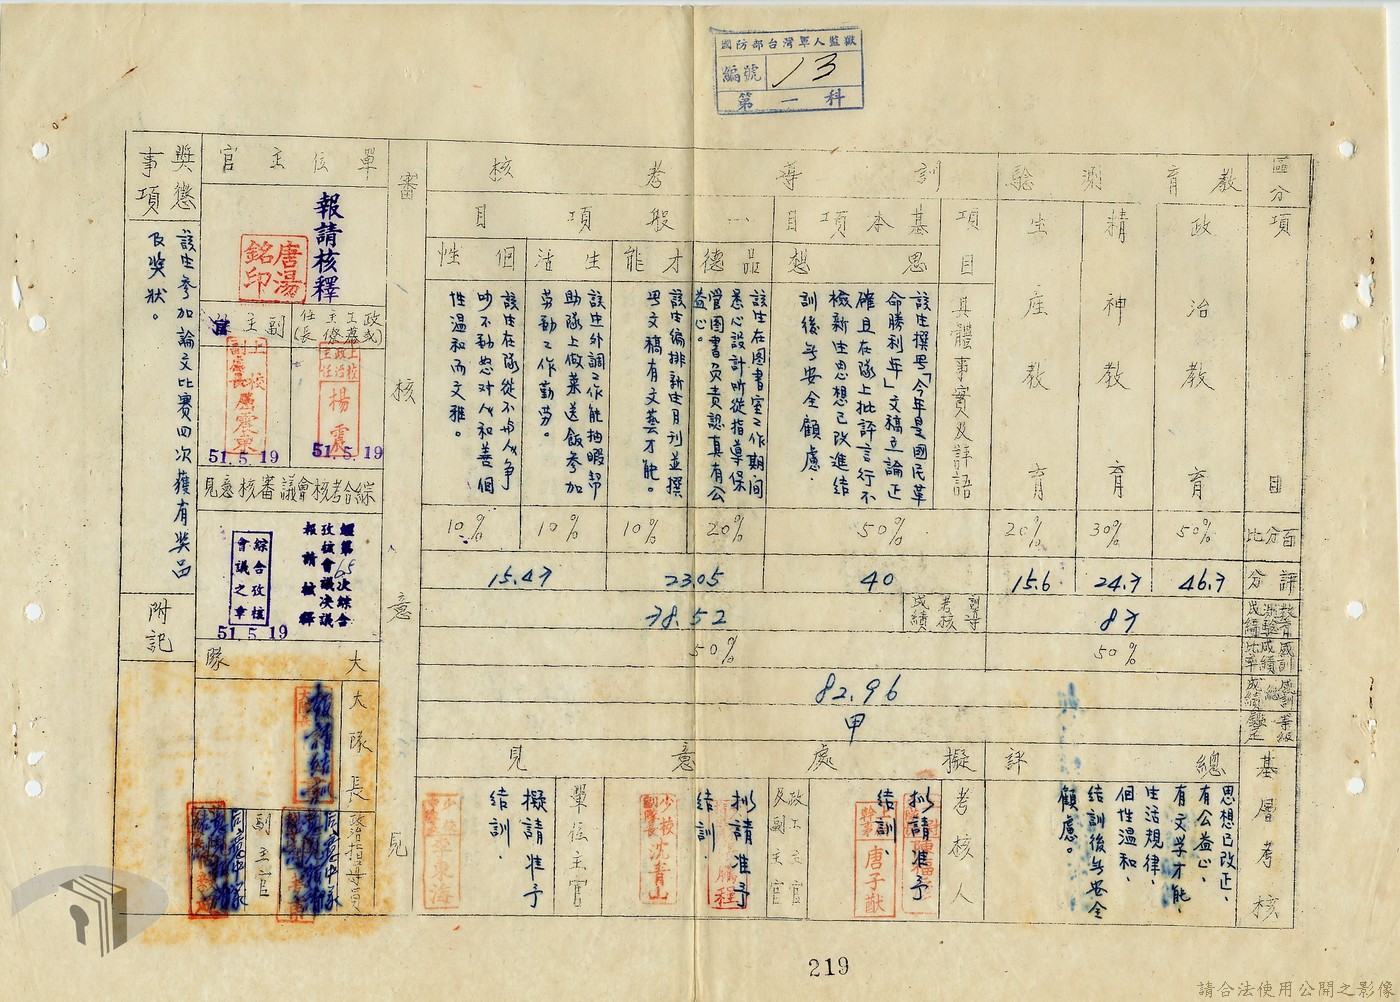 國防部台灣軍人監獄
編號 13
第一科
區分
項目
教育測驗
政治教育
精神教育
生產教育
訓導考核
項目
基本項目
一般項目
思想
品德
才能
生活
個性
具體事實及評語
該生撰寫「今年是國民革
命勝利年」文稿立論正
確且在隊上批評言行不
檢新生思想已改進結
訓後無安全顧慮.
該生在圖書室工作期間
悉心設計聽從指導保
管圖書負責認真有公
益心。
該生編排新生月刊並撰
寫文稿有文藝才能。
該生外調工作能抽暇幫
助隊上做菜送飯參加
勞動工作勤勞。
該生在隊從不與人爭
吵不動怒对人和善個
性溫和而文雅。
百分比
50% 30% 20%
50% 20% 10% 10% 10%
評分
46.7 24.7 15.6
40 23.05 15.47
教育測驗成績
87
訓導考核成績
78.52
感訓成績比率
50% 50%
感訓總成績
82.96
等級
甲
基層考核
總評
思想已改正、
有公益心、
有文学才能、
生活規律、
個性溫和、
結訓後無安全
顧慮。
擬處意見
考核人
拟請准予
結訓.
唐子猷
政工主官及副主官
拟請准予
結訓.
少校副隊長沈青山
單位主官
擬請准予
結訓.
審核意見
單位主官
報請核釋
唐湯銘印
政工幕僚主任(或長)
副主官
上校政治主任楊震
51.5.19
上校副監長唐震東
51.5.19
綜合考核會議審核意見
經第65次綜合
攷核會議決議
報請核釋
綜合攷核
會議之章
51.5.19
大隊
大隊長
報請結訓
政治指導員
同意中隊
副主官
同意中隊
獎懲事項
該生參加論文比賽四次獲有奖品
及奖狀。
附記
219
請合法使用公開之影像